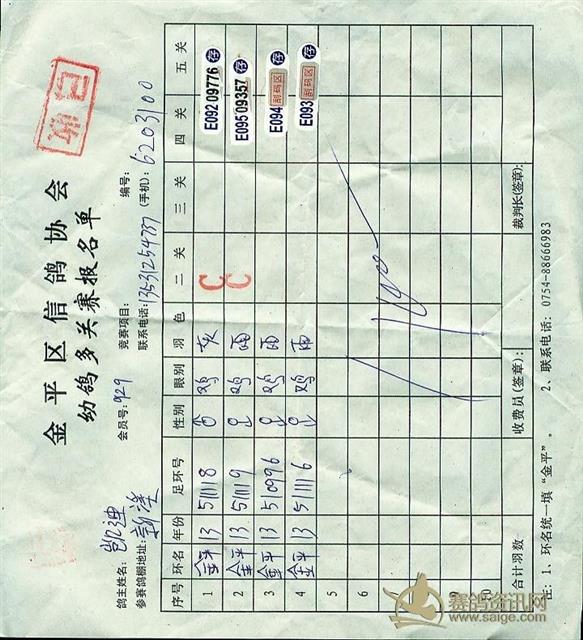 金平区信鸽协会
幼鸽多关赛报名单
鸽主姓名：凯迪 会员号：929 竞赛项目： 编号：
参赛鸽棚地址： 联系电话：13531254787 (手机)：6203100
序号 环名 年份 足环号 性别 眼别 羽色 二关 三关 四关 五关
1 金平 13 511118 鸡 灰 C E092 09776 存
2 金平 13 511119 鸡 雨 C E095 09357 存
3 金平 13 510996 鸡 雨 E094 刮码区 存
4 金平 13 511116 鸡 雨 E093 刮码区 存
5
6
7
8
9
10
合计羽数 收费员(签章)： 裁判长(签章)：
注：1、环名统一填“金平”。 2、联系电话：0754-88666983
赛鸽资讯网
www.saige.com